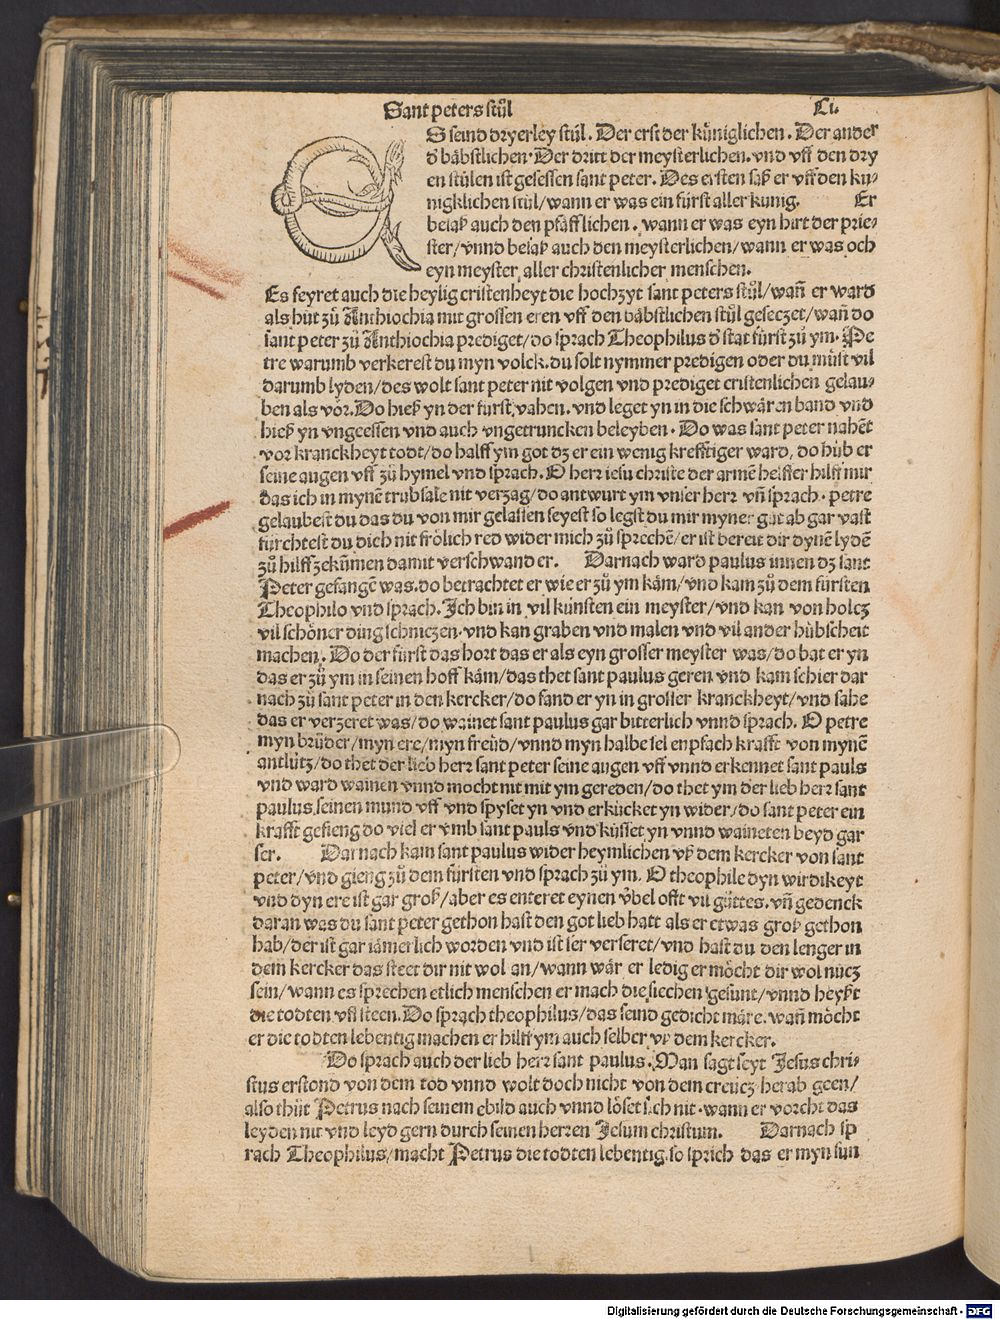 Sant peters stůl Ci.
ES seind dryerley stůl. Der erst der küniglichen. Der ander
d̕ bäbstlichen. Der dritt der meysterlichen. vnd vff den dry
en stůlen ist gesessen sant peter. Des ersten saß er vff den kü-
nigklichen stůl/wann er was ein fürst aller kunig. Er
besaß auch den pfäfflichen. wann er was eyn hirt der prie-
ster/vnnd besaß auch den meysterlichen/wann er was och
eyn meyster aller christenlicher menschen.
Es feyret auch die heylig cristenheyt die hochzyt sant peters stůl/wañ er ward
als hüt zů Anthiochia mit grossen eren vff den bäbstlichen stůl geseczet/wañ do
sant peter zů Anthiochia prediget/do sprach Theophilus d̕ stat fürst zů ym. Pe
tre warumb verkerest du myn volck. du solt nymmer predigen oder du můst vil
darumb lyden/des wolt sant peter nit volgen vnd prediget cristenlichen gelau-
ben als vor. Do hieß yn der fürst vahen. vnd leget yn in die schwären band vnd
hieß yn vngeessen vnd auch vngetruncken beleyben. Do was sant peter nahēt
vor kranckheyt todt/do halff ym got dz er ein wenig krefftiger ward, do hůb er
seine augen vff zů hymel vnd sprach. O herr iesu christe der armē helffer hilff mir
das ich in mynē trübsale nit verzag/do antwurt ym vnser herr vñ sprach. petre
gelaubest du das du von mir gelassen seyest so legst du mir myner güt ab gar vast
fürchtest du dich nit frölich red wider mich zů sprechē/er ist bereit dir dynē lydē
zů hilff zekūmen damit verschwand er. Darnach ward paulus innen dz sant
Peter gefangē was. do betrachtet er wie er zů ym käm/vnd kam zů dem fürsten
Theophilo vnd sprach. Ich bin in vil künsten ein meyster/vnd kan von holcz
vil schöner ding schniczen. vnd kan graben vnd malen vnd vil ander hübscheit
machen. Do der fürst das hort das er als eyn grosser meyster was/do bat er yn
das er zů ym in seinen hoff käm/das thet sant paulus geren vnd kam schier dar
nach zů sant peter in den kercker/do fand er yn in grosser kranckheyt/vnd sahe
das er verzeret was/do wainet sant paulus gar bitterlich vnnd sprach. O petre
myn brüder/myn ere/myn freüd/vnnd myn halbe sel enpfach krafft von mynē
antlütz/do thet der lieb herr sant peter seine augen vff vnnd erkennet sant pauls
vnd ward wainen vnnd mocht nit mit ym gereden/do thet ym der lieb herr sant
paulus seinen mund vff vnd spyset yn vnd erkücket yn wider/do sant peter ein
krafft gefieng do viel er vmb sant pauls vnd küsset yn vnnd waineten beyd gar
ser. Darnach kam sant paulus wider heymlichen vß dem kercker von sant
peter/vnd gieng zů dem fürsten vnd sprach zů ym. O theophile dyn wirdikeyt
vnd dyn ere ist gar groß/aber es enteret eynen übel offt vil gůttes. vñ gedenck
daran was du sant peter gethon hast den got lieb hatt als er etwas groß gethon
hab/der ist gar iämerlich worden vnd ist ser verseret/vnd hast du den lenger in
dem kercker das steet dir nit wol an/wann wär er ledig er möcht dir wol nücz
sein/wann es sprechen etlich menschen er mach die siechen gesunt/vnnd heyßt
die todten vff steen. Do sprach theophilus/das seind gedicht märe. wañ möcht
er die todten lebentig machen er hilff ym auch selber vß dem kercker.
Do sprach auch der lieb herr sant paulus. Man sagt seyt Jesus chri-
stus erstond von dem tod vnnd wolt doch nicht von dem creücz herab geen/
also thüt Petrus nach seinem ebild auch vnnd löset sich nit. wann er vorcht das
leyden nit vnd leyd gern durch seinen herren Jesum christum. Darnach sp
rach Theophilus/macht Petrus die todten lebentig. so sprich das er myn sun
Digitalisierung gefördert durch die Deutsche Forschungsgemeinschaft - DFG